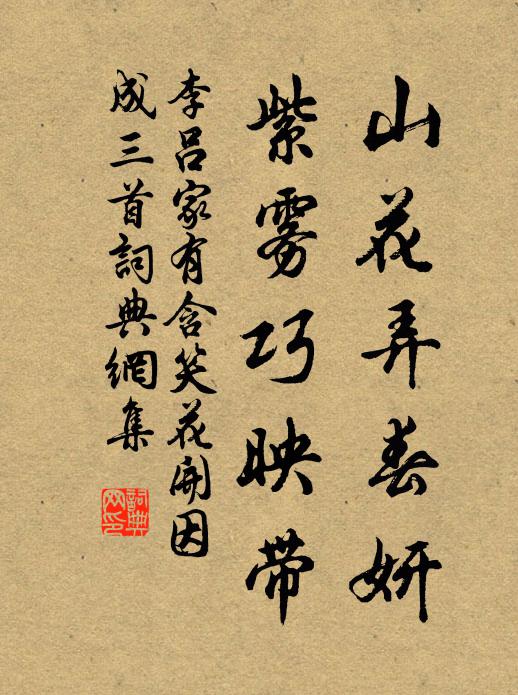 山花弄春妍
紫雾巧映带
李吕家有含笑花開因
成三首詞典網集
詞典网印